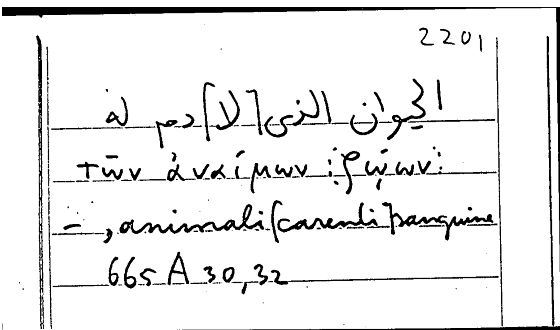 2201
الحيوان الذى [لا] دم له
τῶν ἀναίμων :ζῴων:
–, animali [carenti] sanguine
665 A 30, 32